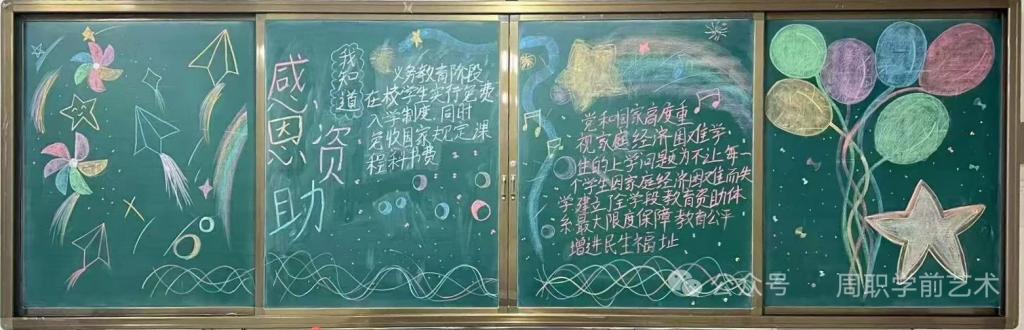 感恩
资助
我知道
义务教育阶段
在校学生实行免费
入学制度 同时
免收国家规定课
程科书费
党和国家高度重
视家庭经济困难学
生的上学问题为不让每一
个学生因家庭经济困难而失
学建立了全学段教育资助体
系最大限度保障教育公平
增进民生福址
公众号 周职学前艺术